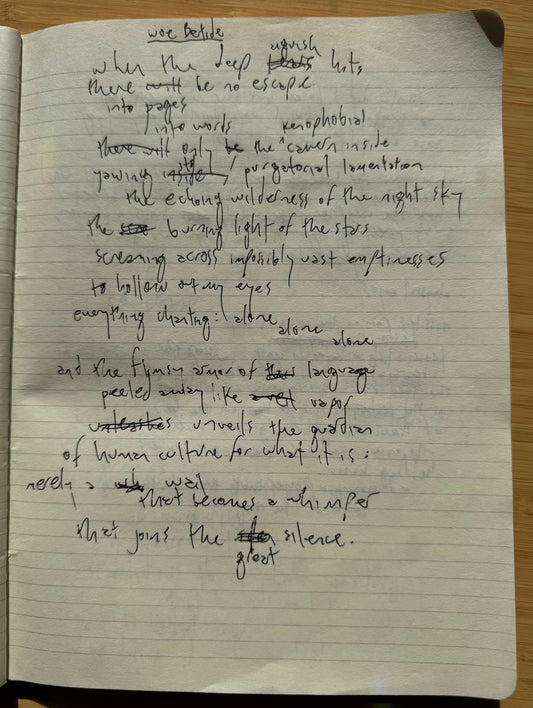 woe Betide
when the deep anguish hits
there will be no escape
into pages
into words
there will only be the xenophobial cavern inside
yawning into / purgatorial lamentation
the echoing wilderness of the night sky
the burning light of the stars
screaming across impossibly vast emptinesses
to hollow out my eyes
everything chanting: alone
alone
alone
and the flimsy armor of language
peeled away like vapor
unveils the guardian
of human culture for what it is:
merely a wail
that becomes a whimper
that joins the great silence.